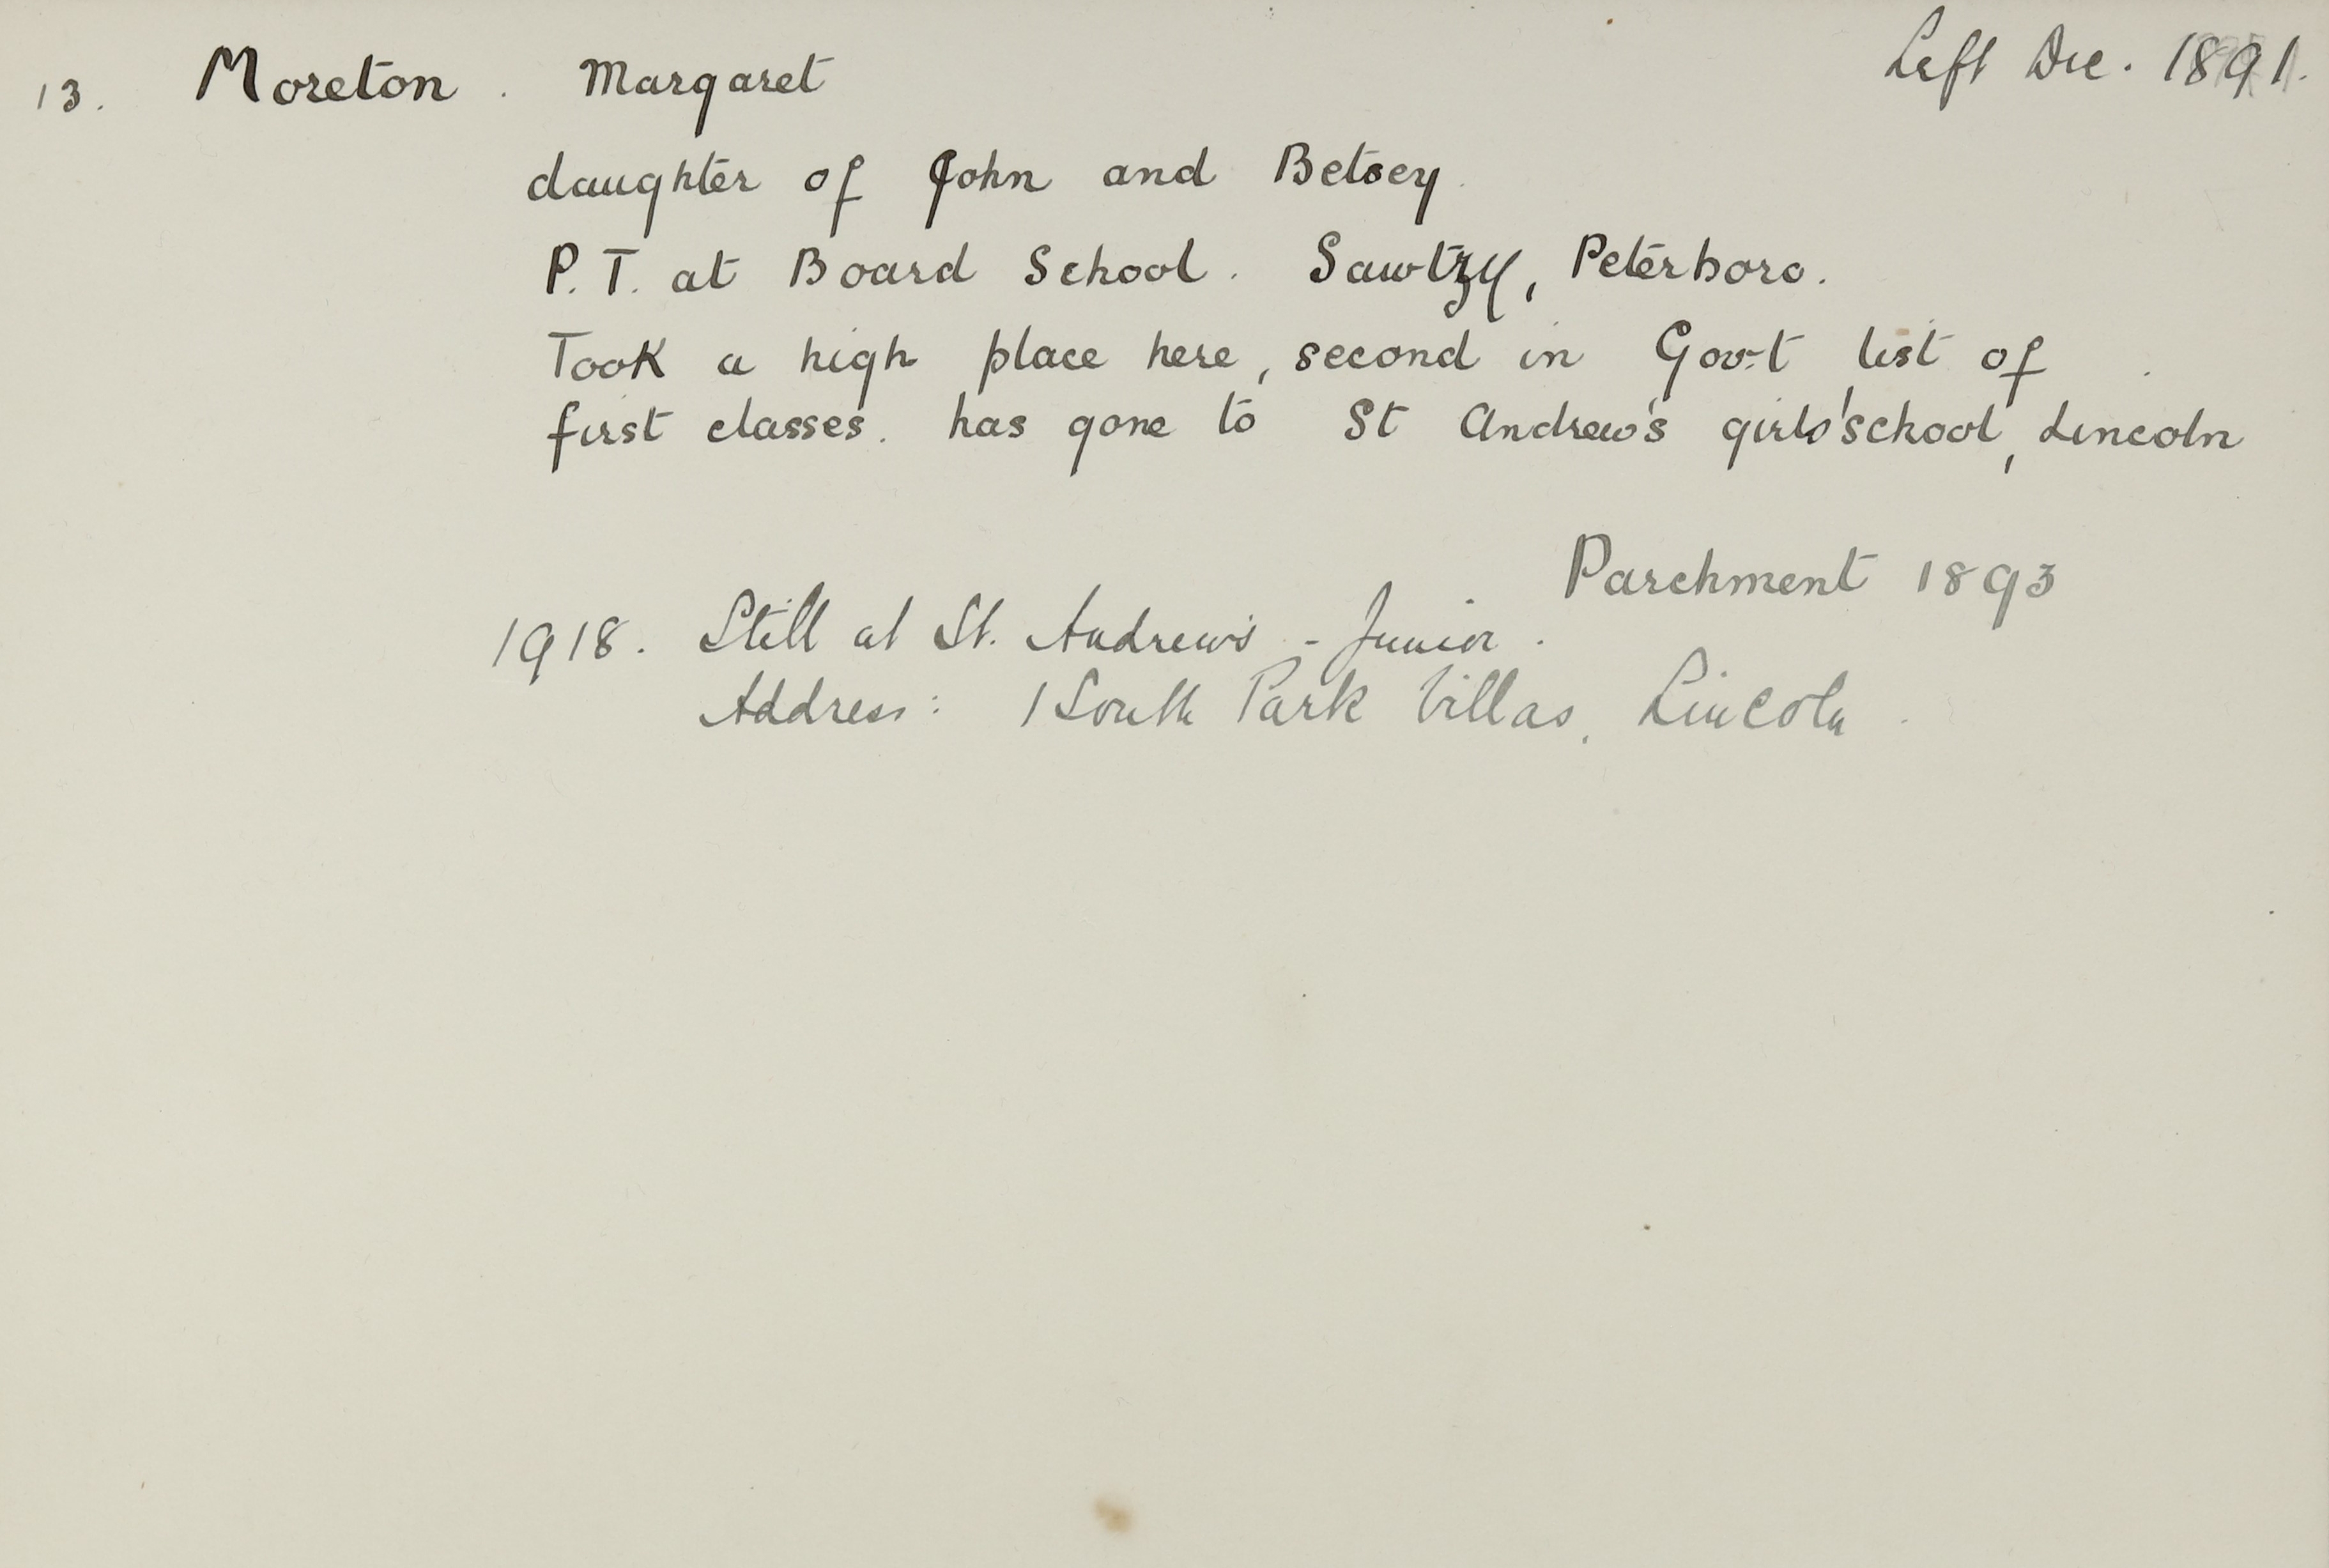 13. Moreton. Margaret Left Dec. 1891.
daughter of John and Betsey.
P.T. at Board School. Sawtry, Peterboro.
Took a high place here, second in Gov:t list of
first classes. has gone to St Andrew's girls' school, Lincoln
Parchment 1893
1918. Still at St. Andrew's - Junior.
Address: 1 South Park Villas, Lincoln.